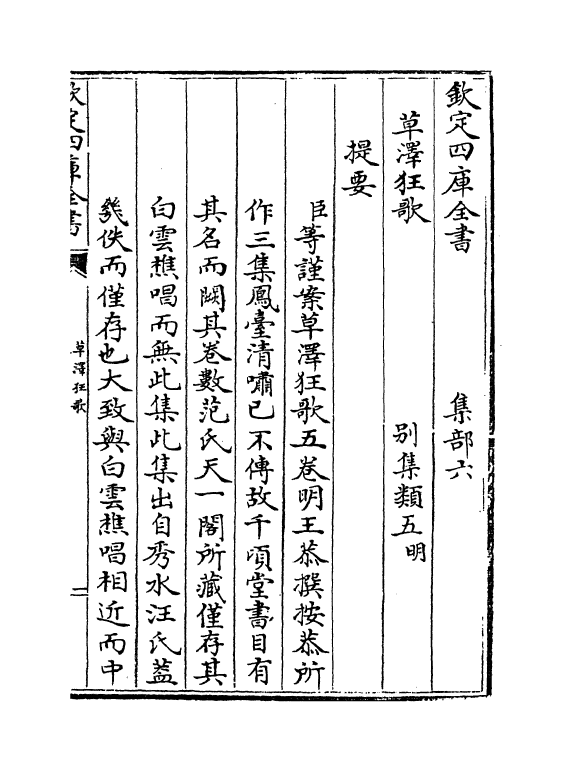 欽定四庫全書　集部六
草澤狂歌　別集類五明
提要
臣等謹案草澤狂歌五卷明王恭撰按恭所
作三集鳳臺清嘯已不傳故千頃堂書目有
其名而闕其卷數范氏天一閣所藏僅存其
白雲樵唱而無此集此集出自秀水汪氏葢
幾佚而僅存也大致與白雲樵唱相近而中
欽定四庫全書
草澤狂歌
一